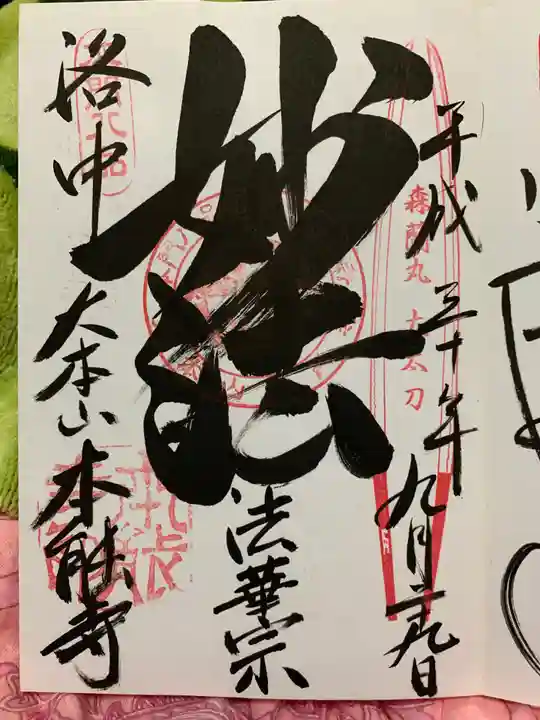 平成三十年九月二十九日
森蘭丸 大太刀
妙法
法華宗
洛中 大本山 本能寺